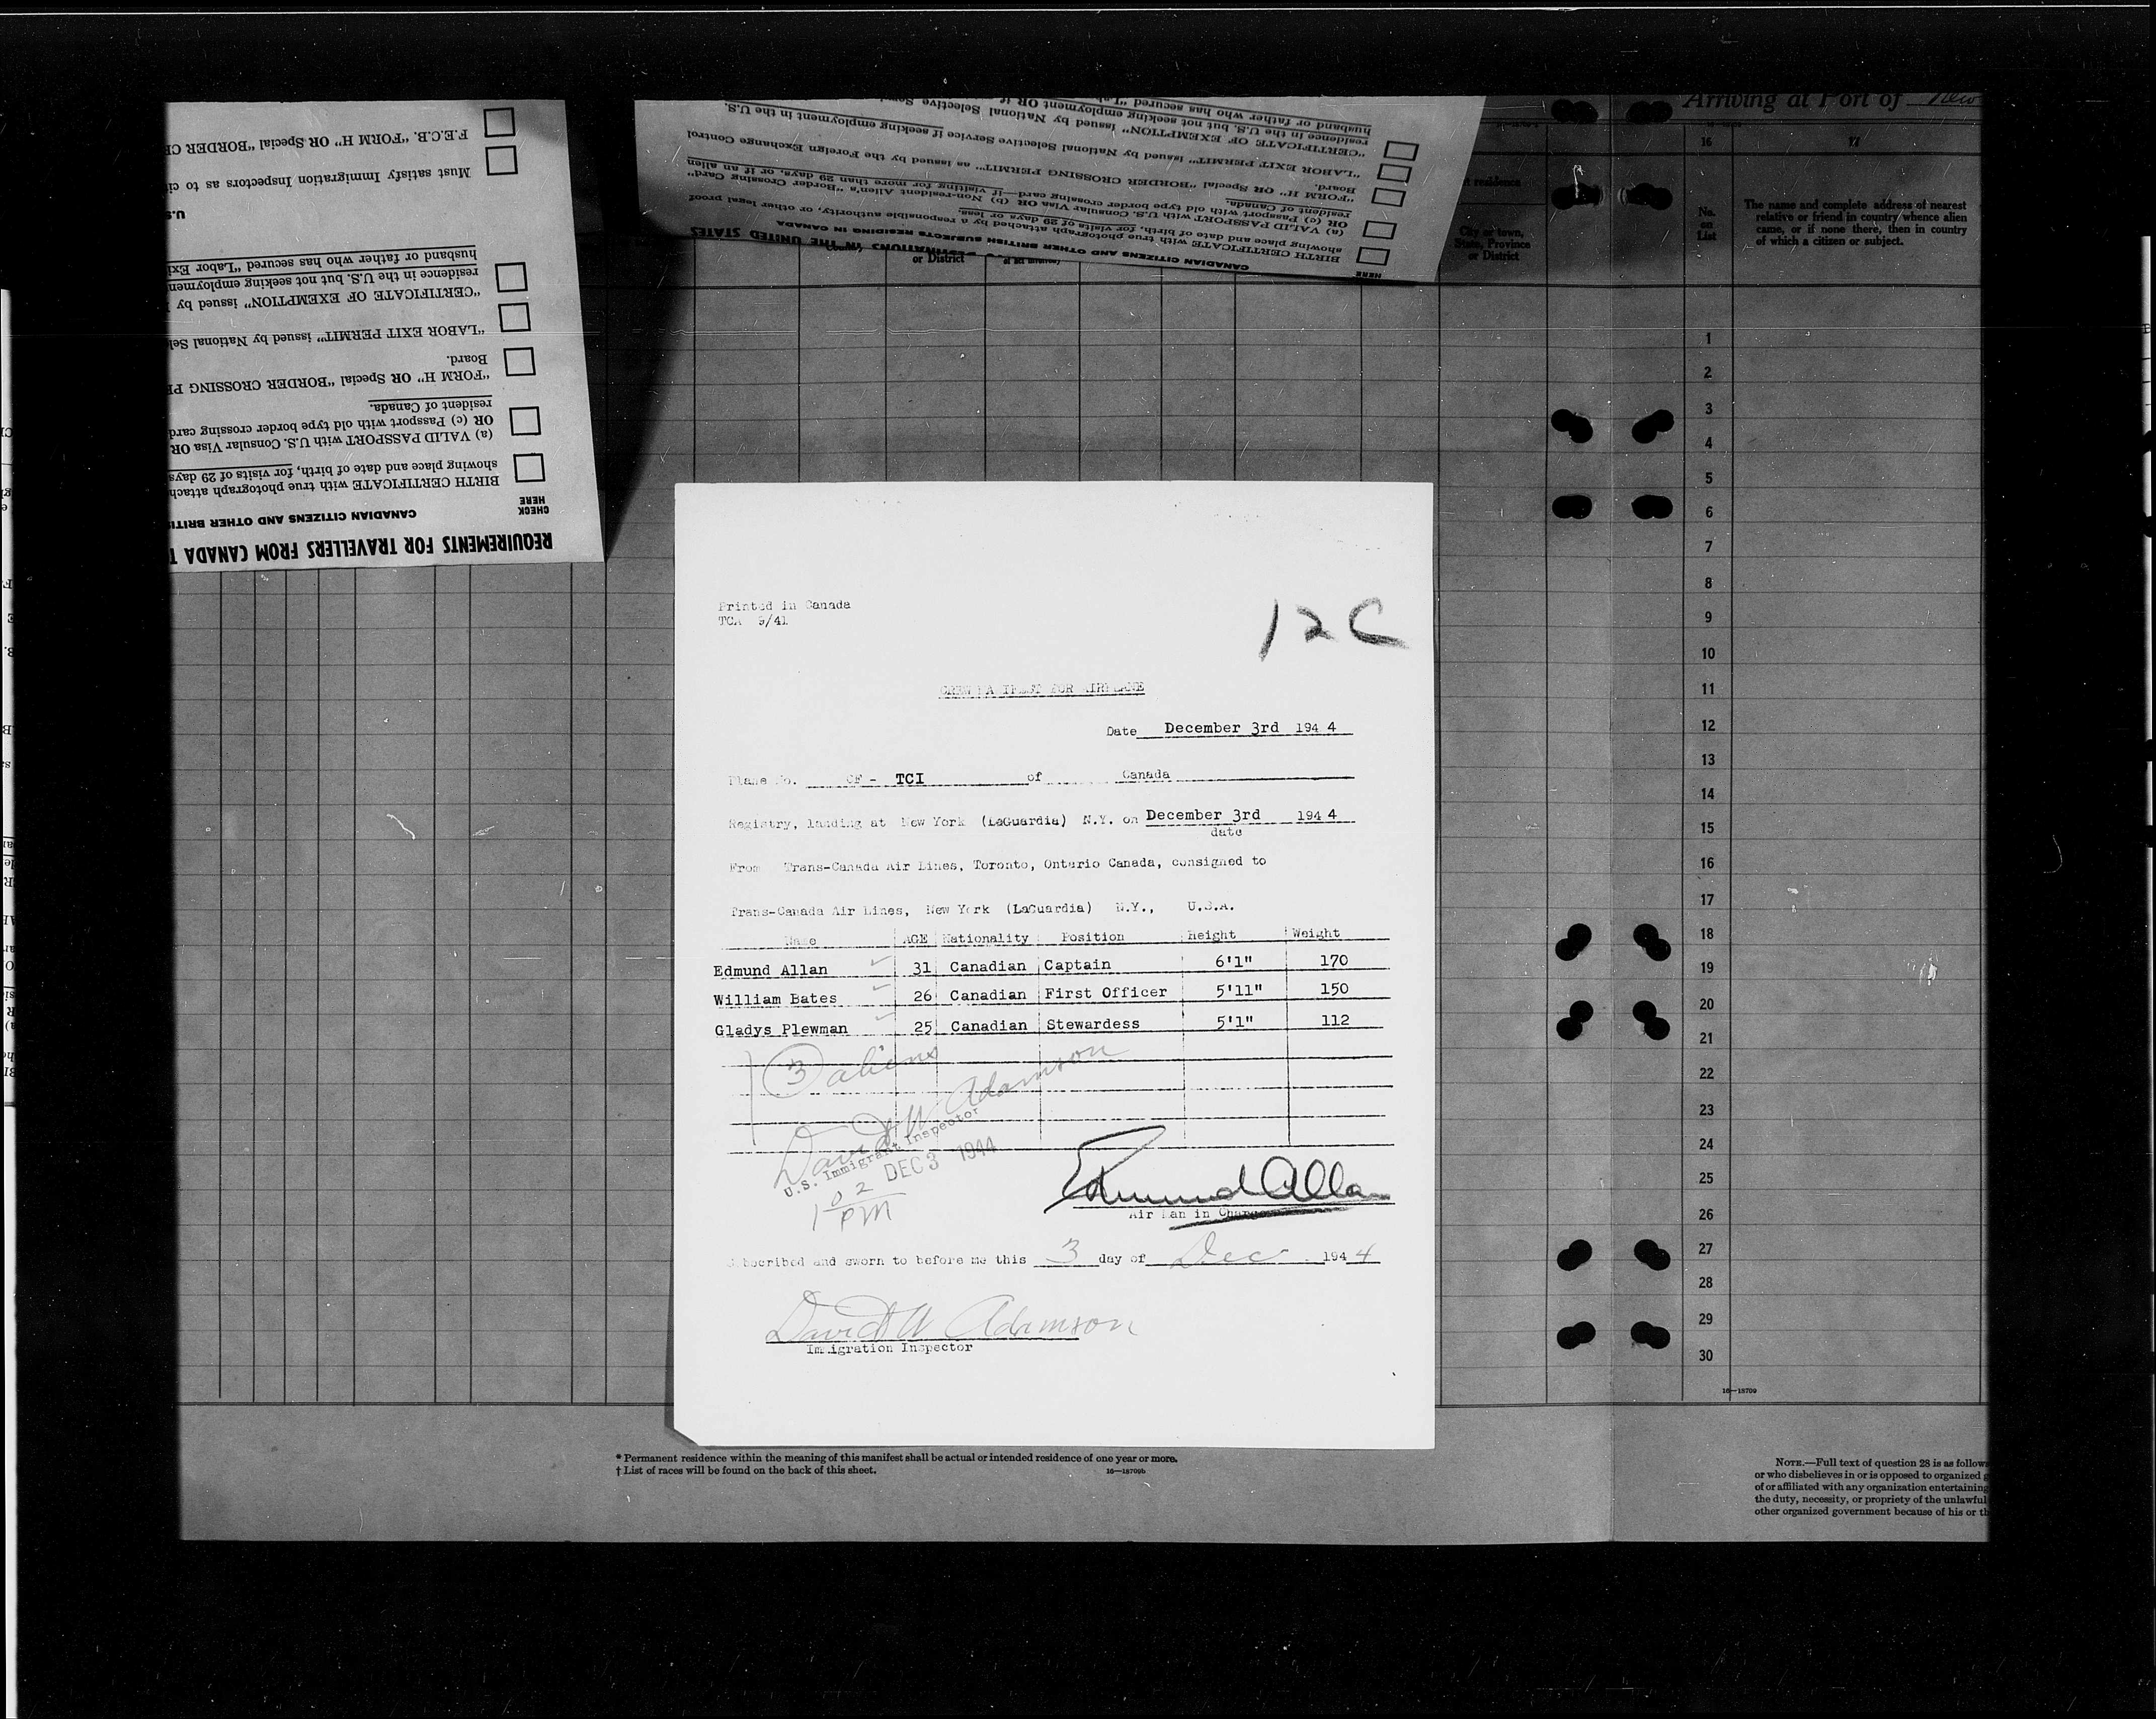 Printed in Canada
TCA 9/41
12C
CREW MANIFEST FOR AIRPLANE
Date December 3rd 1944
Plane No. CF - TCI of Canada
Registry, landing at New York (LaGuardia) N.Y. on December 3rd 1944
date
From Trans-Canada Air Lines, Toronto, Ontario Canada, consigned to
Trans-Canada Air Lines, New York (LaGuardia) N.Y., U.S.A.
Name AGE Nationality Position Height Weight
Edmund Allan 31 Canadian Captain 6'1" 170
William Bates 26 Canadian First Officer 5'11" 150
Gladys Plewman 25 Canadian Stewardess 5'1" 112
3 aliens
David W Adamson
U.S. Immigrant Inspector
DEC 3 1944
1 02 PM
Edmund Allan
Air Man in Charge
Subscribed and sworn to before me this 3 day of Dec 1944
David W Adamson
Immigration Inspector
REQUIREMENTS FOR TRAVELLERS FROM CANADA
CANADIAN CITIZENS AND OTHER
CHECK
HERE
BIRTH CERTIFICATE with true photograph
showing place and date of birth, for visits of 29 days
(a) VALID PASSPORT with U.S. Consular Visa OR
OR (c) Passport with old type border crossing card
resident of Canada.
"FORM H" OR Special "BORDER CROSSING
Board.
"LABOR EXIT PERMIT" issued by National
"CERTIFICATE OF EXEMPTION" issued by
residence in the U.S. but not seeking
husband or father who has secured "Labor
Must satisfy Immigration Inspectors as to
F.E.C.B. "FORM H" OR Special "BORDER
IN THE UNITED STATES
CANADIAN CITIZENS AND OTHER BRITISH SUBJECTS RESIDING IN CANADA
HERE
BIRTH CERTIFICATE with true photograph attached by a responsible authority, or other legal proof
showing place and date of birth, for visits of 29 days or less.
(a) VALID PASSPORT with U.S. Consular Visa OR (b) Non-resident Alien's "Border Crossing Card"
OR (c) Passport with old type border crossing card—if visiting for more than 29 days, or if an alien
resident of Canada.
"FORM H" OR Special "BORDER CROSSING PERMIT" as issued by the Foreign Exchange Control
Board.
"LABOR EXIT PERMIT" issued by National Selective Service if seeking employment in the U.S.
"CERTIFICATE OF EXEMPTION" issued by National Selective
residence in the U.S. but not seeking employment OR if
husband or father who has secured
or District
Arriving at Port of New
16
17
residence
City or town,
State, Province
or District
No.
on
List
The name and complete address of nearest
relative or friend in country whence alien
came, or if none there, then in country
of which a citizen or subject.
1
2
3
4
5
6
7
8
9
10
11
12
13
14
15
16
17
18
19
20
21
22
23
24
25
26
27
28
29
30
16—18709
* Permanent residence within the meaning of this manifest shall be actual or intended residence of one year or more.
† List of races will be found on the back of this sheet.
16—18709b
NOTE.—Full text of question 28 is as follows
or who disbelieves in or is opposed to organized
of or affiliated with any organization entertaining
the duty, necessity, or propriety of the unlawful
other organized government because of his or